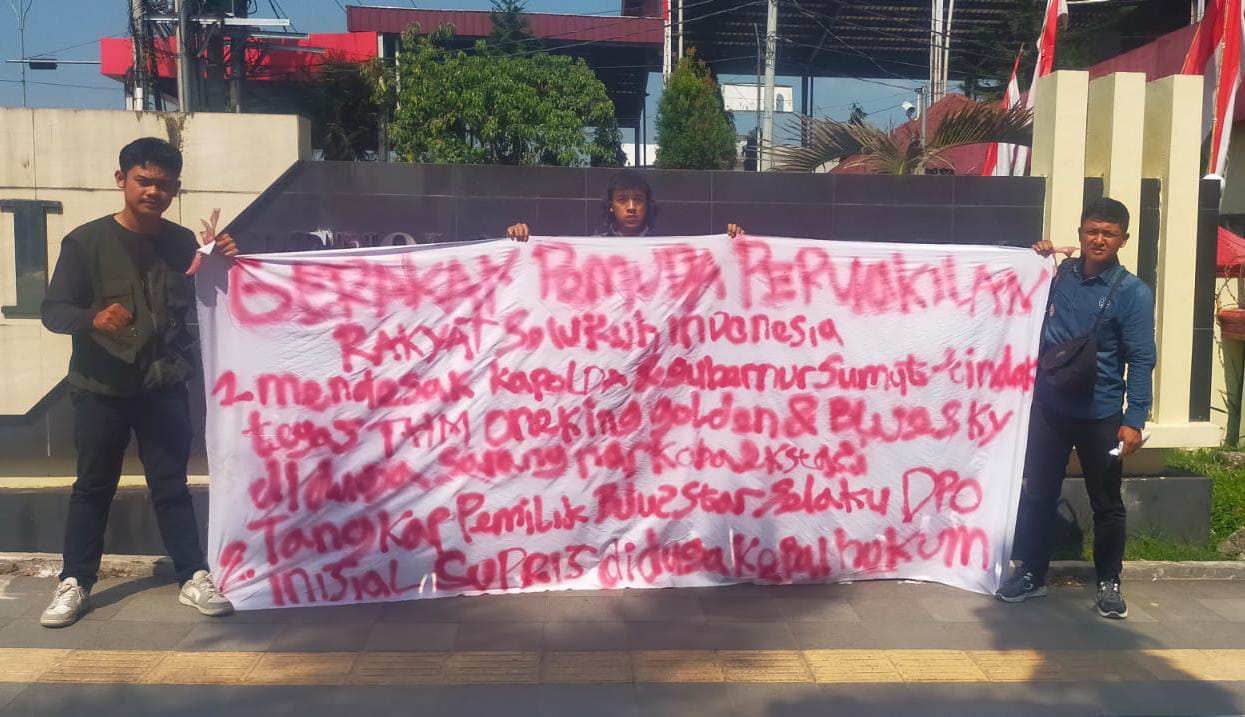 GERAKAN PEMUDA PERWAKILAN
RAKYAT SeluRuh indonesia
1. mendesak KapoLDA & Gubernur Sumut tindak
tegas THM oneking golden & BlueSKy
diduga sarang narkoba ekstasi
2. TangKap Pemilik BlueStar Selaku DPO
INISiAL SUPRIS diduga Kebal hukum